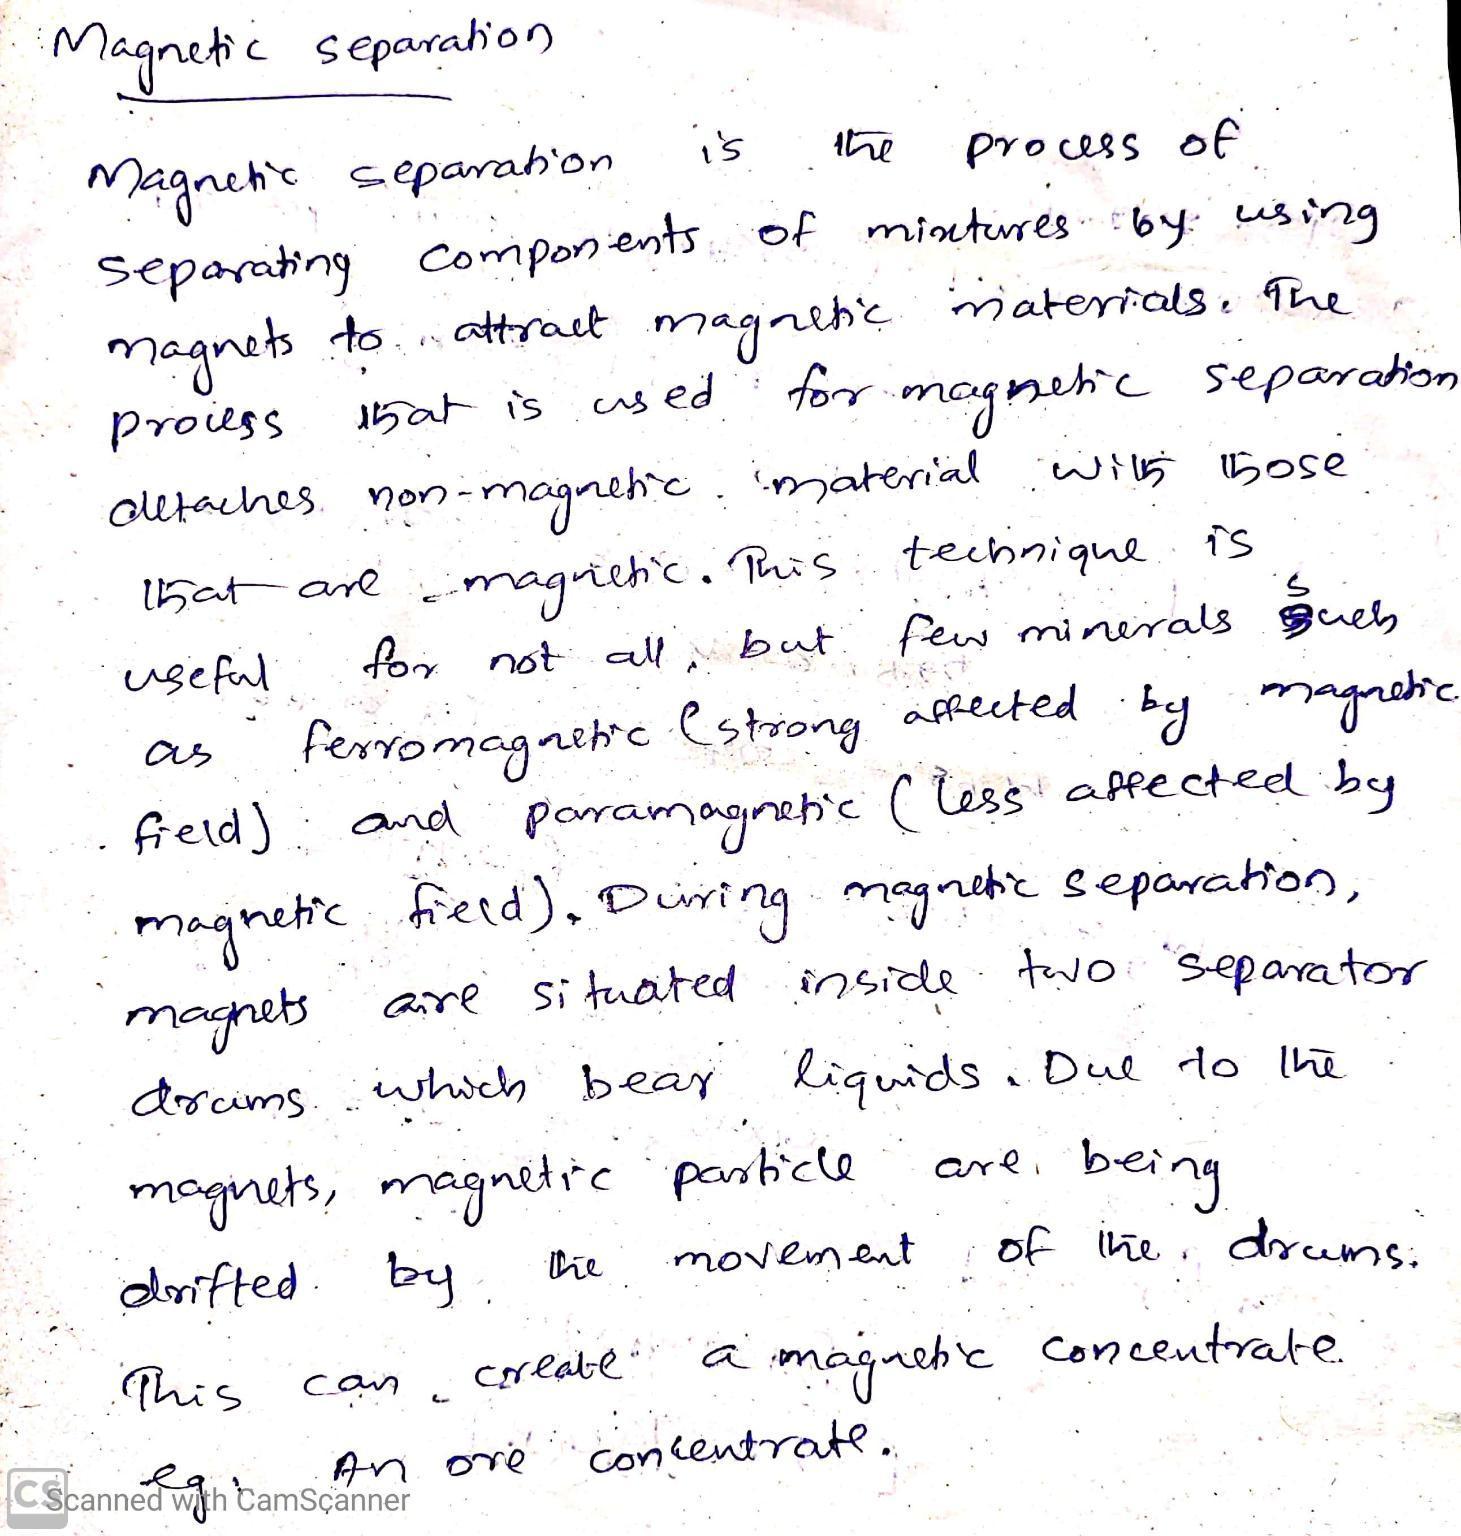 Magnetic separation
Magnetic separation is the process of
separating components of mixtures by using
magnets to attract magnetic materials. The
process that is used for magnetic separation
detaches non-magnetic material with those
that are magnetic. This technique is
useful for not all, but few minerals such
as ferromagnetic (strong affected by magnetic
field) and paramagnetic (less affected by
magnetic field). During magnetic separation,
magnets are situated inside two separator
drums which bear liquids. Due to the
magnets, magnetic particle are being
drifted by the movement of the drums.
This can create a magnetic concentrate.
eg: An ore concentrate.
CS Scanned with CamScanner